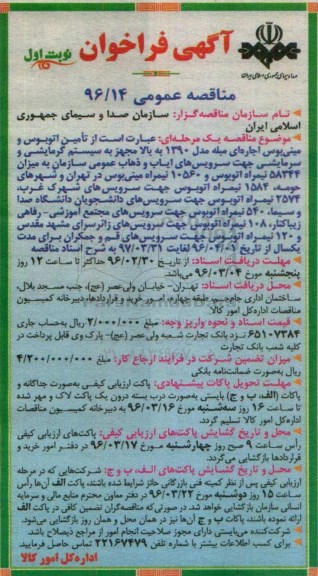 صدا و سیمای جمهوری اسلامی ایران
آگهی فراخوان
نوبت اول
مناقصه عمومی ۹۶/۱۴
نام سازمان مناقصه‌گزار: سازمان صدا و سیمای جمهوری
اسلامی ایران
موضوع مناقصه یک مرحله‌ای: عبارت است از تأمین اتوبوس و
مینی‌بوس اجاره‌ای مبله مدل ۱۳۹۰ به بالا مجهز به سیستم گرمایشی و
سرمایشی جهت سرویس‌های ایاب و ذهاب عمومی سازمان به میزان
۵۸۳۴۴ نیمراه اتوبوس و ۱۰۵۶۰ نیمراه مینی‌بوس در تهران و شهرهای
حومه، ۱۵۸۴ نیمراه اتوبوس جهت سرویس‌های شهرک غرب،
۲۵۷۴ نیمراه اتوبوس جهت سرویس‌های دانشجویان دانشگاه صدا
و سیما، ۵۴۰ نیمراه اتوبوس جهت سرویس‌های مجتمع آموزشی- رفاهی
زیباکنار، ۱۰۸ نیمراه اتوبوس جهت سرویس‌های زائرسرای مشهد مقدس
و ۱۲۰ نیمراه اتوبوس جهت سرویس‌های قم و جمکران برای مدت
یکسال از تاریخ ۹۶/۰۴/۰۱ لغایت ۹۷/۰۳/۳۱ به شرح اسناد مناقصه
مهلت دریافت اسناد: از تاریخ ۹۶/۰۲/۳۰ حداکثر تا ساعت ۱۲ روز
پنجشنبه مورخ ۹۶/۰۳/۰۴ می‌باشد.
محل دریافت اسناد: تهران- خیابان ولی‌عصر (عج)، جنب مسجد بلال،
ساختمان اداری جام‌جم، طبقه چهارم، امور خرید و قراردادها، دبیرخانه کمیسیون
مناقصات اداره‌کل امور کالا
قیمت اسناد و نحوه واریز وجه: مبلغ ۲/۰۰۰/۰۰۰ ریال به‌حساب جاری
۶۵۱۰۷۳۸۴ نزد بانک تجارت شعبه ولی‌عصر (عج)- پارک وی قابل پرداخت در
کلیه شعب بانک تجارت
میزان تضمین شرکت در فرآیند ارجاع کار: مبلغ ۴/۲۰۰/۰۰۰/۰۰۰
ریال به‌صورت ضمانت‌نامه بانکی
مهلت تحویل پاکات پیشنهادی: پاکت ارزیابی کیفی به‌صورت جداگانه و
پاکات (الف، ب و ج) بایستی به‌صورت درب بسته درون یک پاکت لاک و مهر شده
تا ساعت ۱۶ روز سه‌شنبه مورخ ۹۶/۰۳/۱۶ به دبیرخانه کمیسیون مناقصات
اداره‌کل امور کالا تسلیم گردد.
محل و تاریخ گشایش پاکت‌های ارزیابی کیفی: پاکت‌های ارزیابی کیفی
رأس ساعت ۹ صبح روز چهارشنبه مورخ ۹۶/۰۳/۱۷ در دفتر امور خرید و
قراردادها بازگشایی می‌گردد.
محل و تاریخ گشایش پاکت‌های الف، ب و ج: شرکت‌هایی که در مرحله
ارزیابی کیفی پس از نظر کمیته فنی بازرگانی حائز شرایط شده باشند، پاکت الف آن‌ها رأس
ساعت ۱۵ روز دوشنبه مورخ ۹۶/۰۳/۲۲ در دفتر معاون محترم منابع مالی و سرمایه
انسانی سازمان بازگشایی خواهد شد. در صورتی که مناقصه‌گران تضمین کافی در پاکت الف
ارائه نموده باشند، پاکات ب و ج آن‌ها نیز در همان محل و همان روز بازگشایی می‌شود.
شرکت‌کننده می‌بایستی دارای مجوز صلاحیت انجام امور از مراجع ذیصلاح باشد.
برای کسب اطلاعات بیشتر با شماره تلفن ۲۲۱۶۷۴۷۹ تماس حاصل فرمایید
اداره‌کل امور کالا